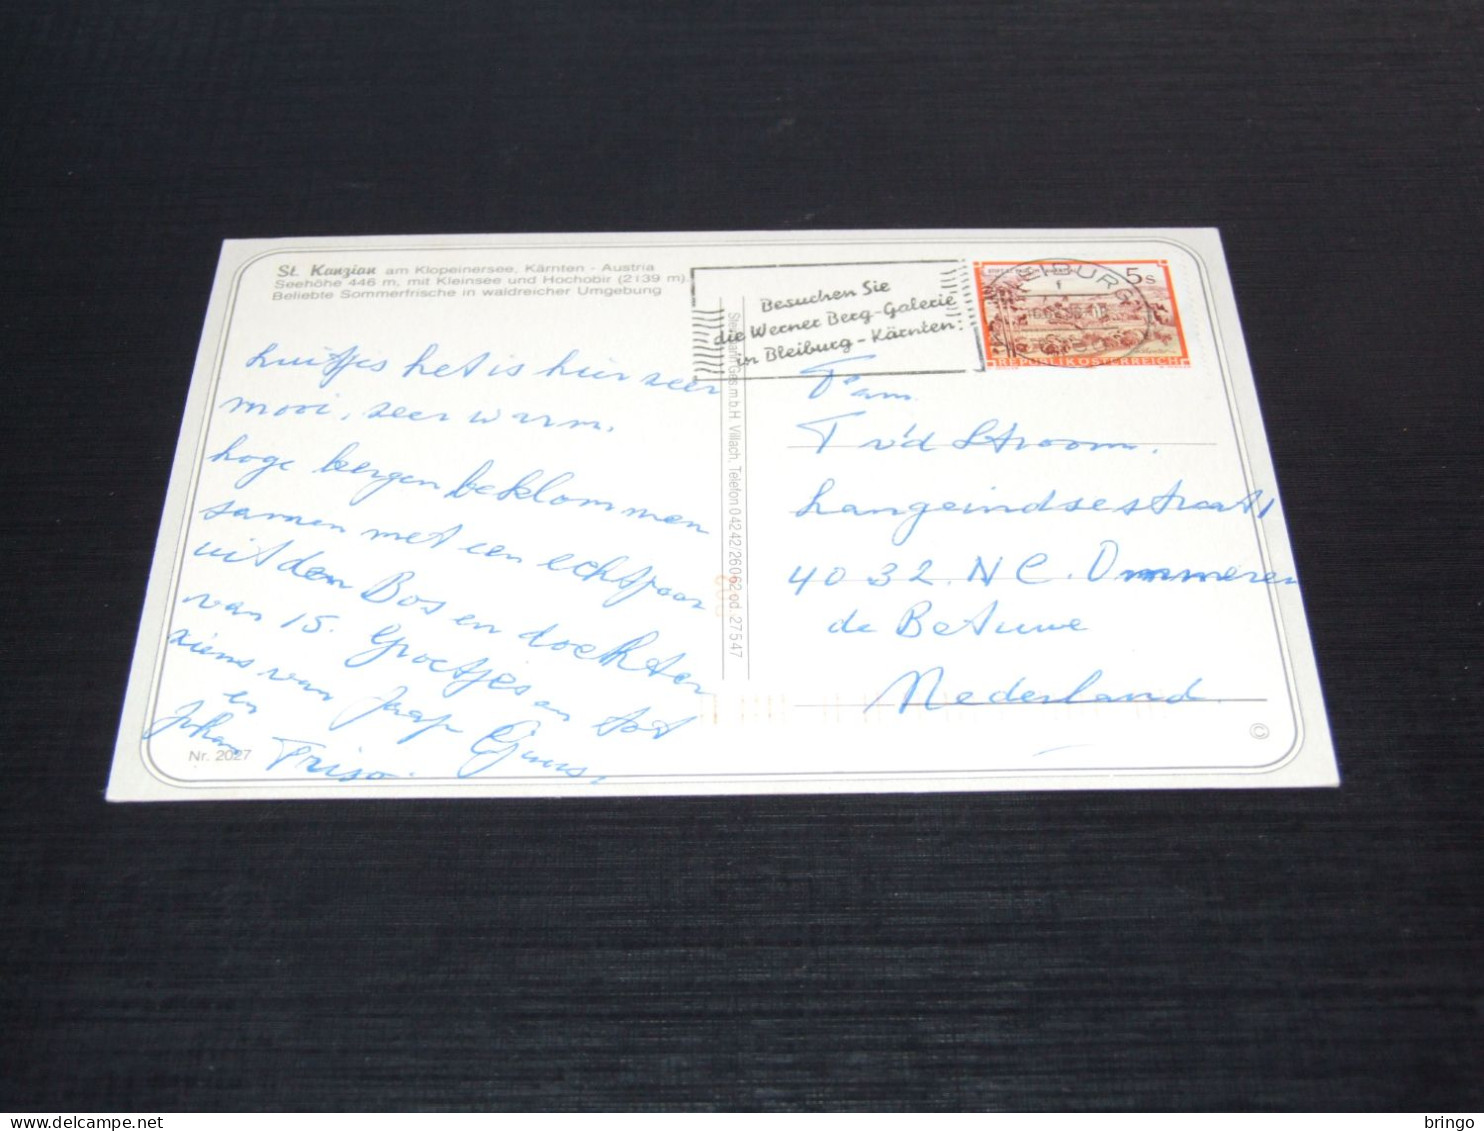 St. Kanzian am Klopeinersee, Kärnten - Austria
Seehöhe 446 m, mit Kleinsee und Hochobir (2139 m)
Beliebte Sommerfrische in waldreicher Umgebung
Luitjes het is hier zeer
mooi, zeer warm,
hoge bergen beklommen
samen met een echtpaar
uit den Bos en dochter
van 15. Groetjes en tot
ziens van Jaap Guus,
en
Johan Friso.
Nr. 2027
Ges.m.b.H. Villach, Telefon 04242/26062 od. 27547
Besuchen Sie
die Werner Berg-Galerie
in Bleiburg-Kärnten
5 s
REPUBLIK ÖSTERREICH
Fam.
T v'd Stroom.
Langeindsestraat 1
4032 NC. Ommeren
de Betuwe
Nederland.
©
bringo